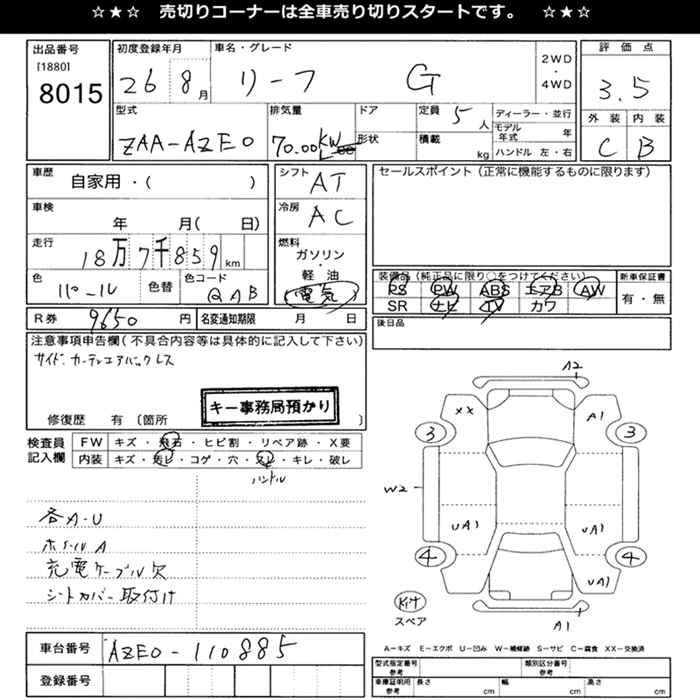 ☆★☆ 売切りコーナーは全車売り切りスタートです。 ☆★☆
出品番号
[1880]
8015
初度登録年月
26 8月
車名・グレード
リーフ G
2WD
・
4WD
評価点
3.5
外装 内装
C B
型式
ZAA-AZE0
排気量
70.00KW
ドア
形状
定員 5人
積載 kg
ディーラー・並行
モデル年式 年
ハンドル 左・右
車歴
自家用・( )
車検
年 月( 日)
走行
18万7千859km
色
パール
色替
色コード
QAB
シフト
AT
冷房
AC
燃料
ガソリン
・
軽油
電気
セールスポイント(正常に機能するものに限ります)
装備品(純正品に限り○をつけてください)
PS PW ABS エアB AW
SR ナビ TV カワ
新車保証書
有・無
R券 9650円
名変通知期限 月 日
後日品
注意事項申告欄(不具合内容等は具体的に記入して下さい)
サイド.カーテンエアバックレス
キー事務局預かり
修復歴 有〔箇所 〕
検査員記入欄
FW キズ・飛石・ヒビ割・リペア跡・X要
内装 キズ・汚レ・コゲ・穴・スレ・キレ・破レ
ハンドル
各A-U
ホイールA
充電ケーブル欠
シートカバー取付け
A2
XX A1
3 3
W2
UA1 UA1
4 4
UA1
Kit
スペア
A1
A-キズ E-エクボ U-凹み W-補修跡 S-サビ C-腐食 XX-交換済
車台番号 AZE0-110885
登録番号
型式指定番号 参考
類別区分番号 参考
車庫証明用 参考
長さ cm 幅 cm 高さ cm